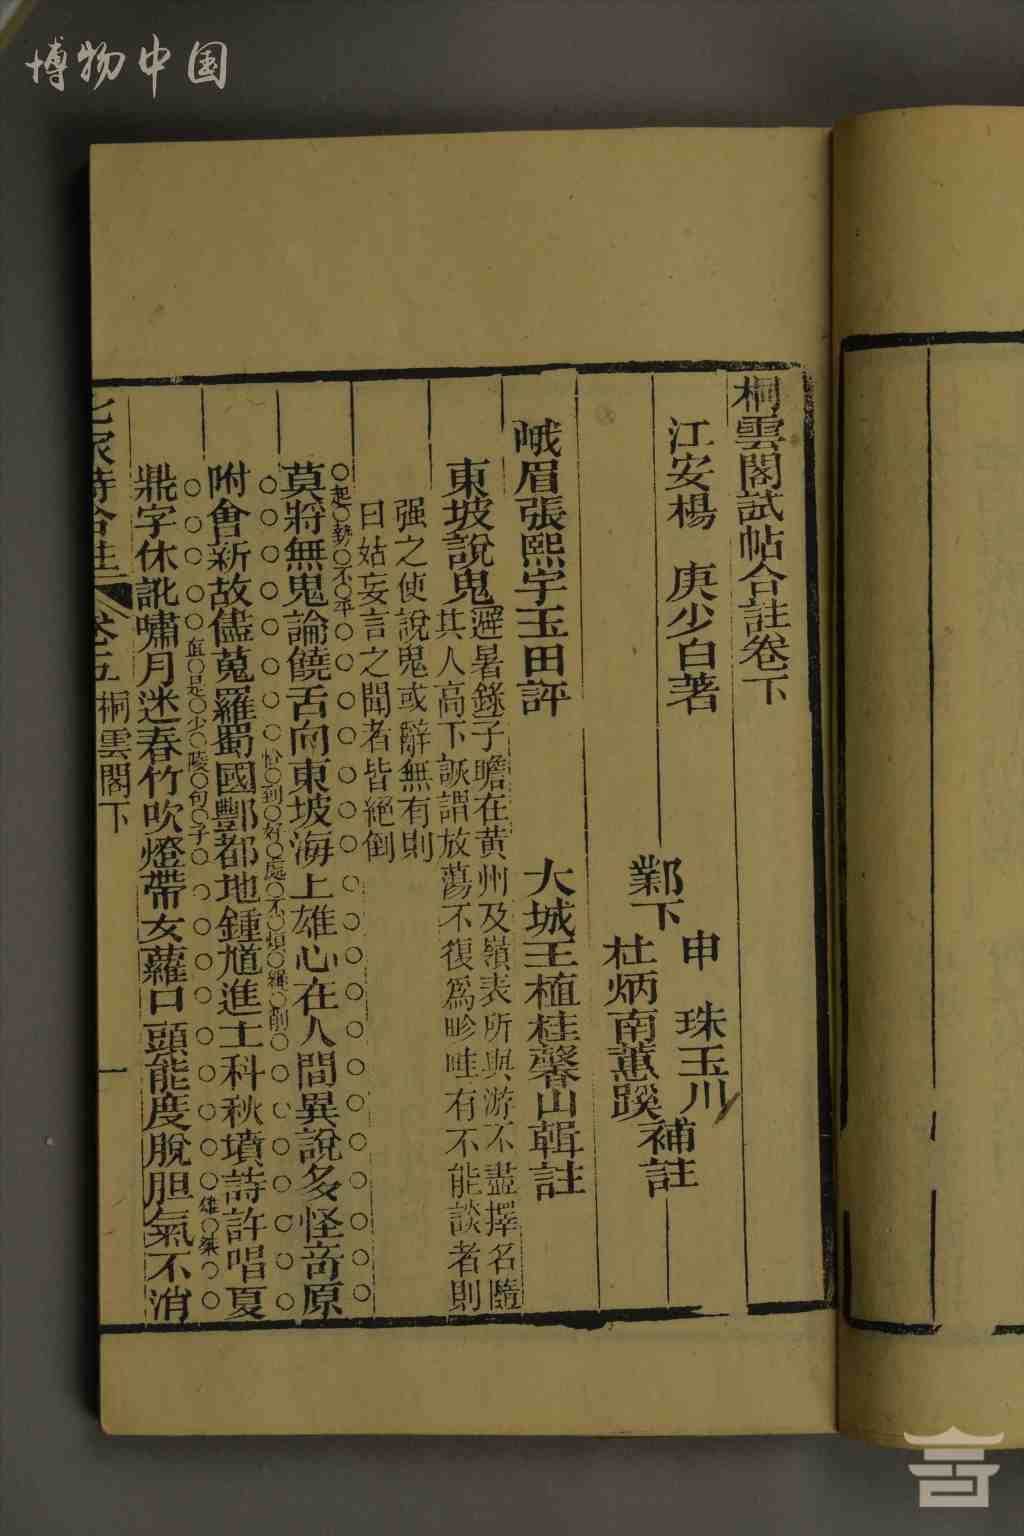 博物中国
桐雲閣試帖合註卷下
江安楊 庚少白著
鄴下
申 珠玉川
杜炳南蕙蹊
補註
峨眉張熙宇玉田評
大城王植桂馨山輯註
東坡說鬼
避暑錄子瞻在黃州及嶺表所與游不盡擇名隨
其人高下詼謂放蕩不復爲畛畦有不能談者則
强之使說鬼或辭無有則
曰姑妄言之聞者皆絕倒
起勢不平
莫將無鬼論饒舌向東坡海上雄心在人間異說多怪奇原
恰到好處不煩繩削
附會新故儘蒐羅蜀國酆都地鍾馗進士科秋墳詩許唱夏
值是少陵句子
雄桀
鼎字休訛嘯月迷春竹吹燈帶女蘿口頭能度脫胆氣不消
七家詩合註
卷五 桐雲閣下
一